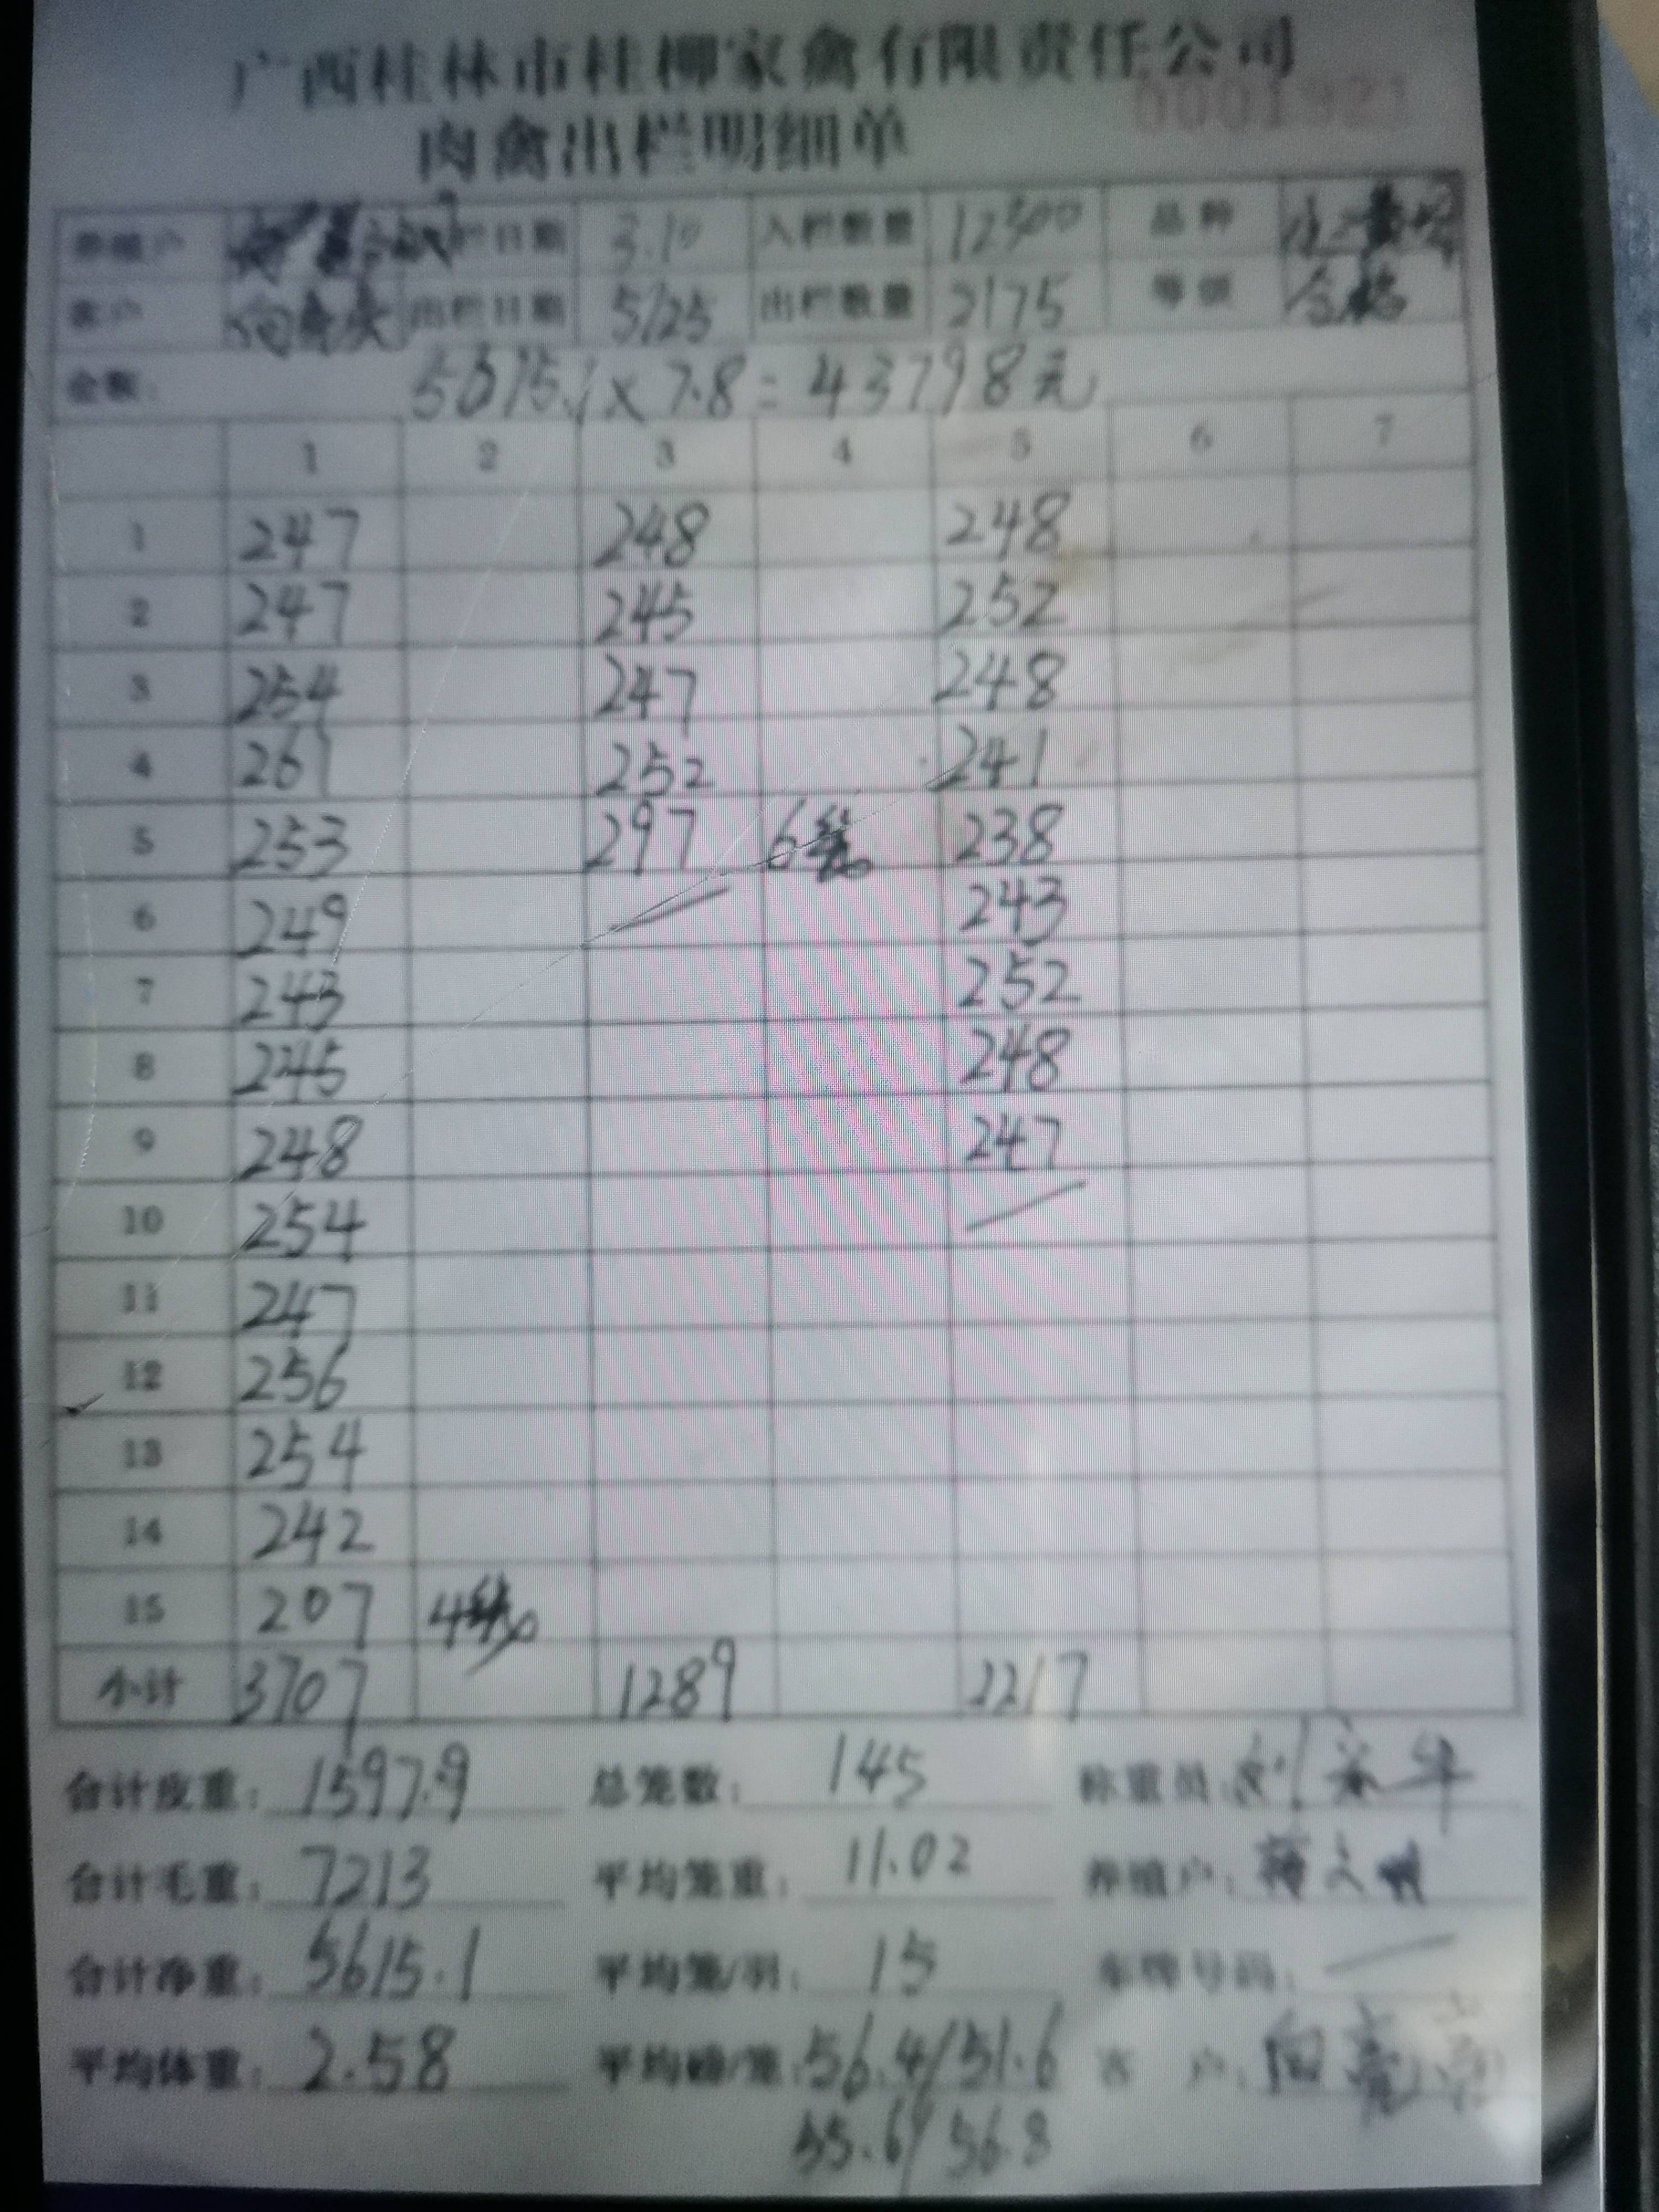 广西桂林市桂柳家禽有限责任公司
肉禽出栏明细单 0001921
养殖户 栏日期 3.10 入栏数量 12300 品种
客户 出栏日期 5/25 出栏数量 2175 等级 合格
金额: 5615.1×7.8=43798元
1 2 3 4 5 6 7
1 247 248 248
2 247 245 252
3 254 247 248
4 261 252 241
5 253 297 6笼 238
6 249 243
7 243 252
8 245 248
9 248 247
10 254
11 247
12 256
13 254
14 242
15 207 4笼
小计 3707 1289 2217
合计皮重: 1597.9 总笼数: 145 称重员:
合计毛重: 7213 平均笼重: 11.02 养殖户:
合计净重: 5615.1 平均笼/羽: 15 车牌号码:
平均体重: 2.58 平均磅/笼: 56.4/51.6 客户:
55.6/ 56.8